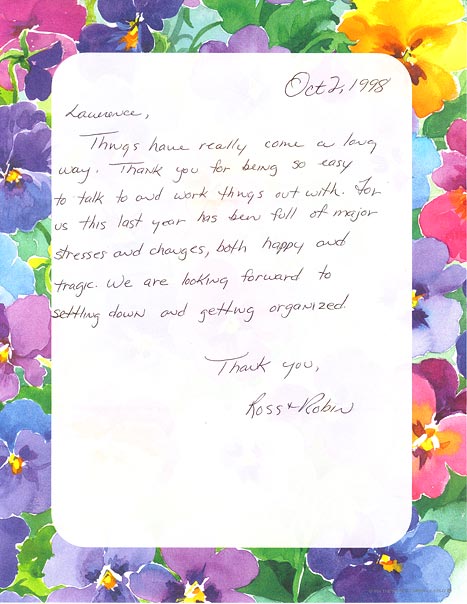 Oct 2, 1998
Lawrence,
Things have really come a long
way. Thank you for being so easy
to talk to and work things out with. For
us this last year has been full of major
stresses and changes, both happy and
tragic. We are looking forward to
settling down and getting organized.
Thank you,
Ross + Robin